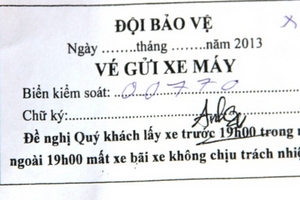 ĐỘI BẢO VỆ
Ngày ........tháng ........năm 2013
VÉ GỬI XE MÁY
Biển kiểm soát: 00770
Chữ ký:
Đề nghị Quý khách lấy xe trước 19h00 trong
ngoài 19h00 mất xe bãi xe không chịu trách